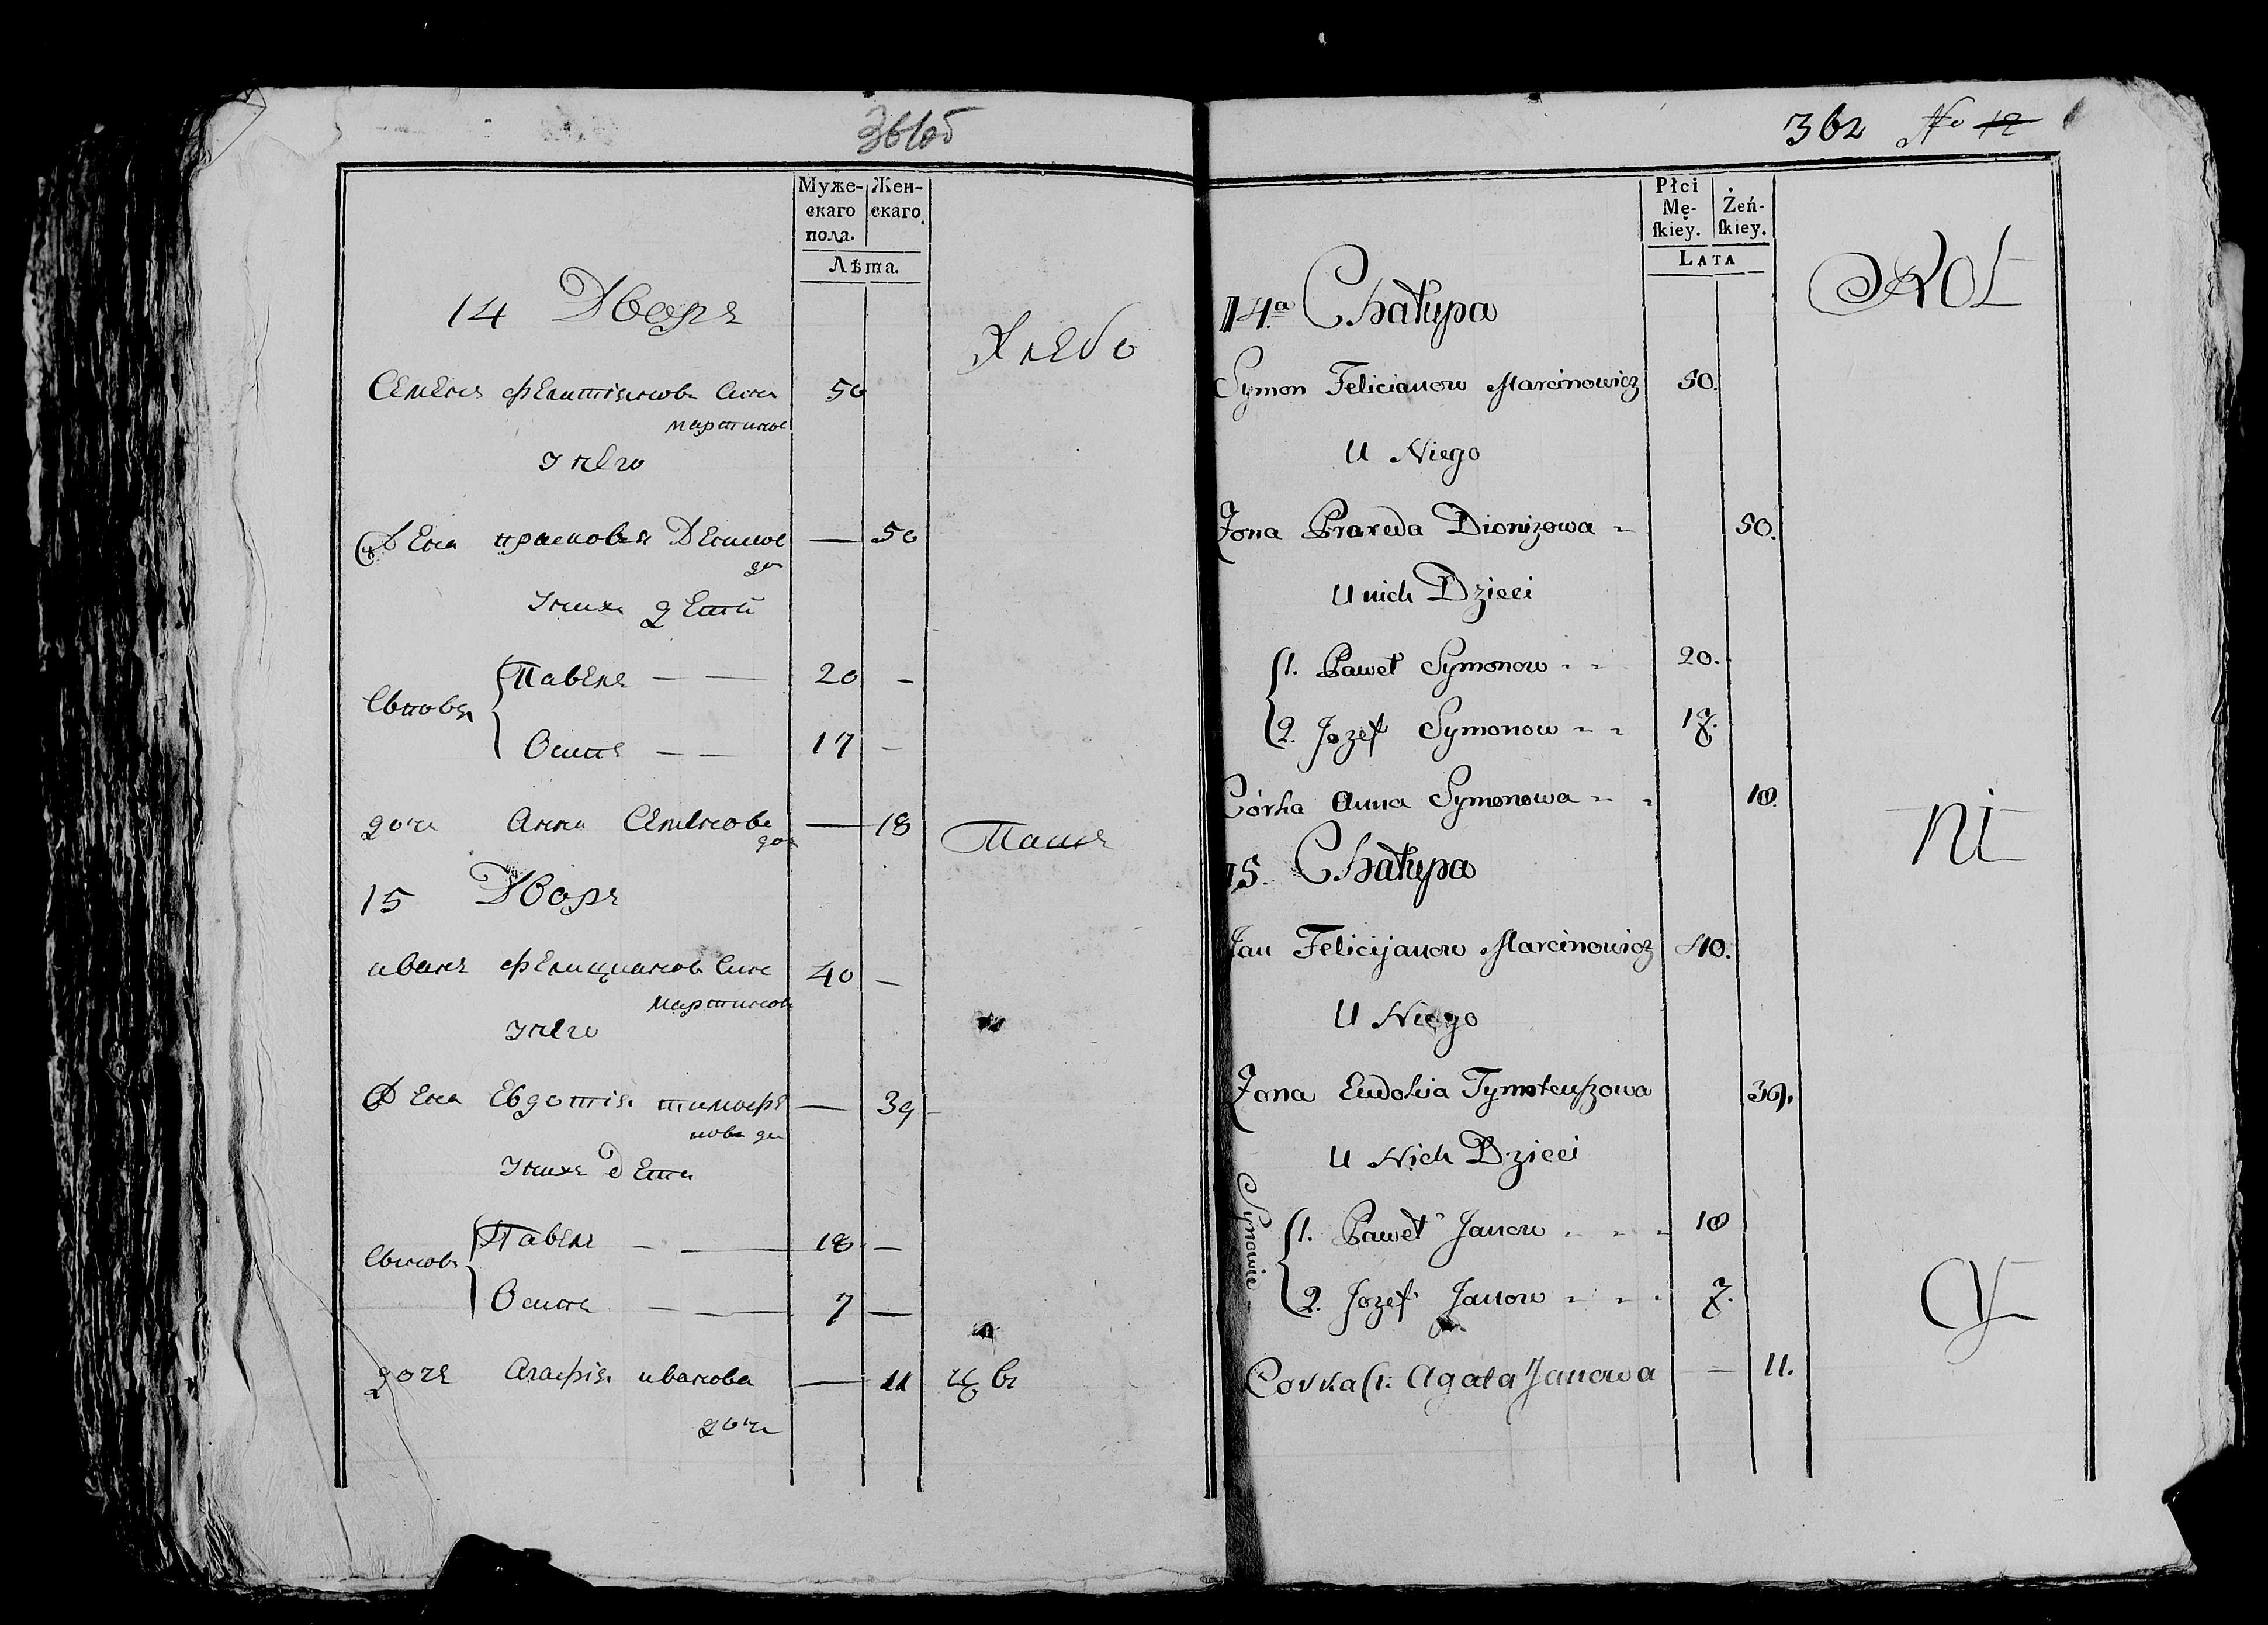 361об
Муже-
скаго
пола.
Жен-
скаго.
Лѣта.
14 Дворъ
Хлебо
Семенъ Фелитіяновъ Синъ 50
мартинов
У него
Жена прасковья Денисов — 50
до
У нихъ дети
Сыновья
Павелъ — — 20 —
Осипъ — — 17 —
дочь Анна Семенова — 18
до
Пашъ
15 Дворъ
иванъ Фелициановъ Синъ 40 —
Мартинов
У него
Жена Евдотія тимофѣ — 39
нова до
У нихъ дети
Сыновья
Павелъ — — 18 —
Осипъ — — 7 —
дочь Агафія иванова — 11
дочь
цъ въ
362 No 12
Płci
Mę-
ſkiey.
Żeń-
ſkiey.
LATA
14a Chałupa
ROL
Symon Felicianow Marcinowicz 50.
U Niego
Żona Praxeda Dionizowa 50.
U nich Dzieci
1. Paweł Symonow 20.
2. Jozef Symonow 17.
Córka Anna Symonowa 18
NI
15. Chałupa
Jan Felicyjanow Marcinowicz 40.
U Niego
Żona Eudokia Tymteuszowa 39.
U Nich Dzieci
Synowie
1. Paweł Janow 18
2. Jozef Janow 7.
CY
Corka 1. Agata Janowa — 11.